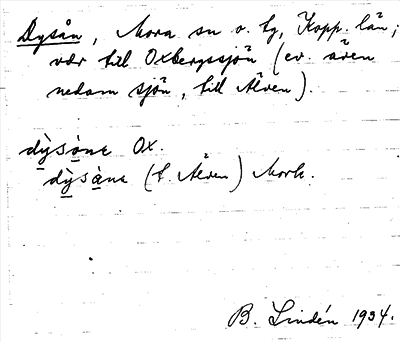 Dysån, Mora sn o. tg, Kopp. län;
vdr till Oxbergssjön (ev. även
nedom sjön, till Älven).
dỳsåne Ox.
dỳsåne (t Älven) Mork.
B. Lindén 1934.